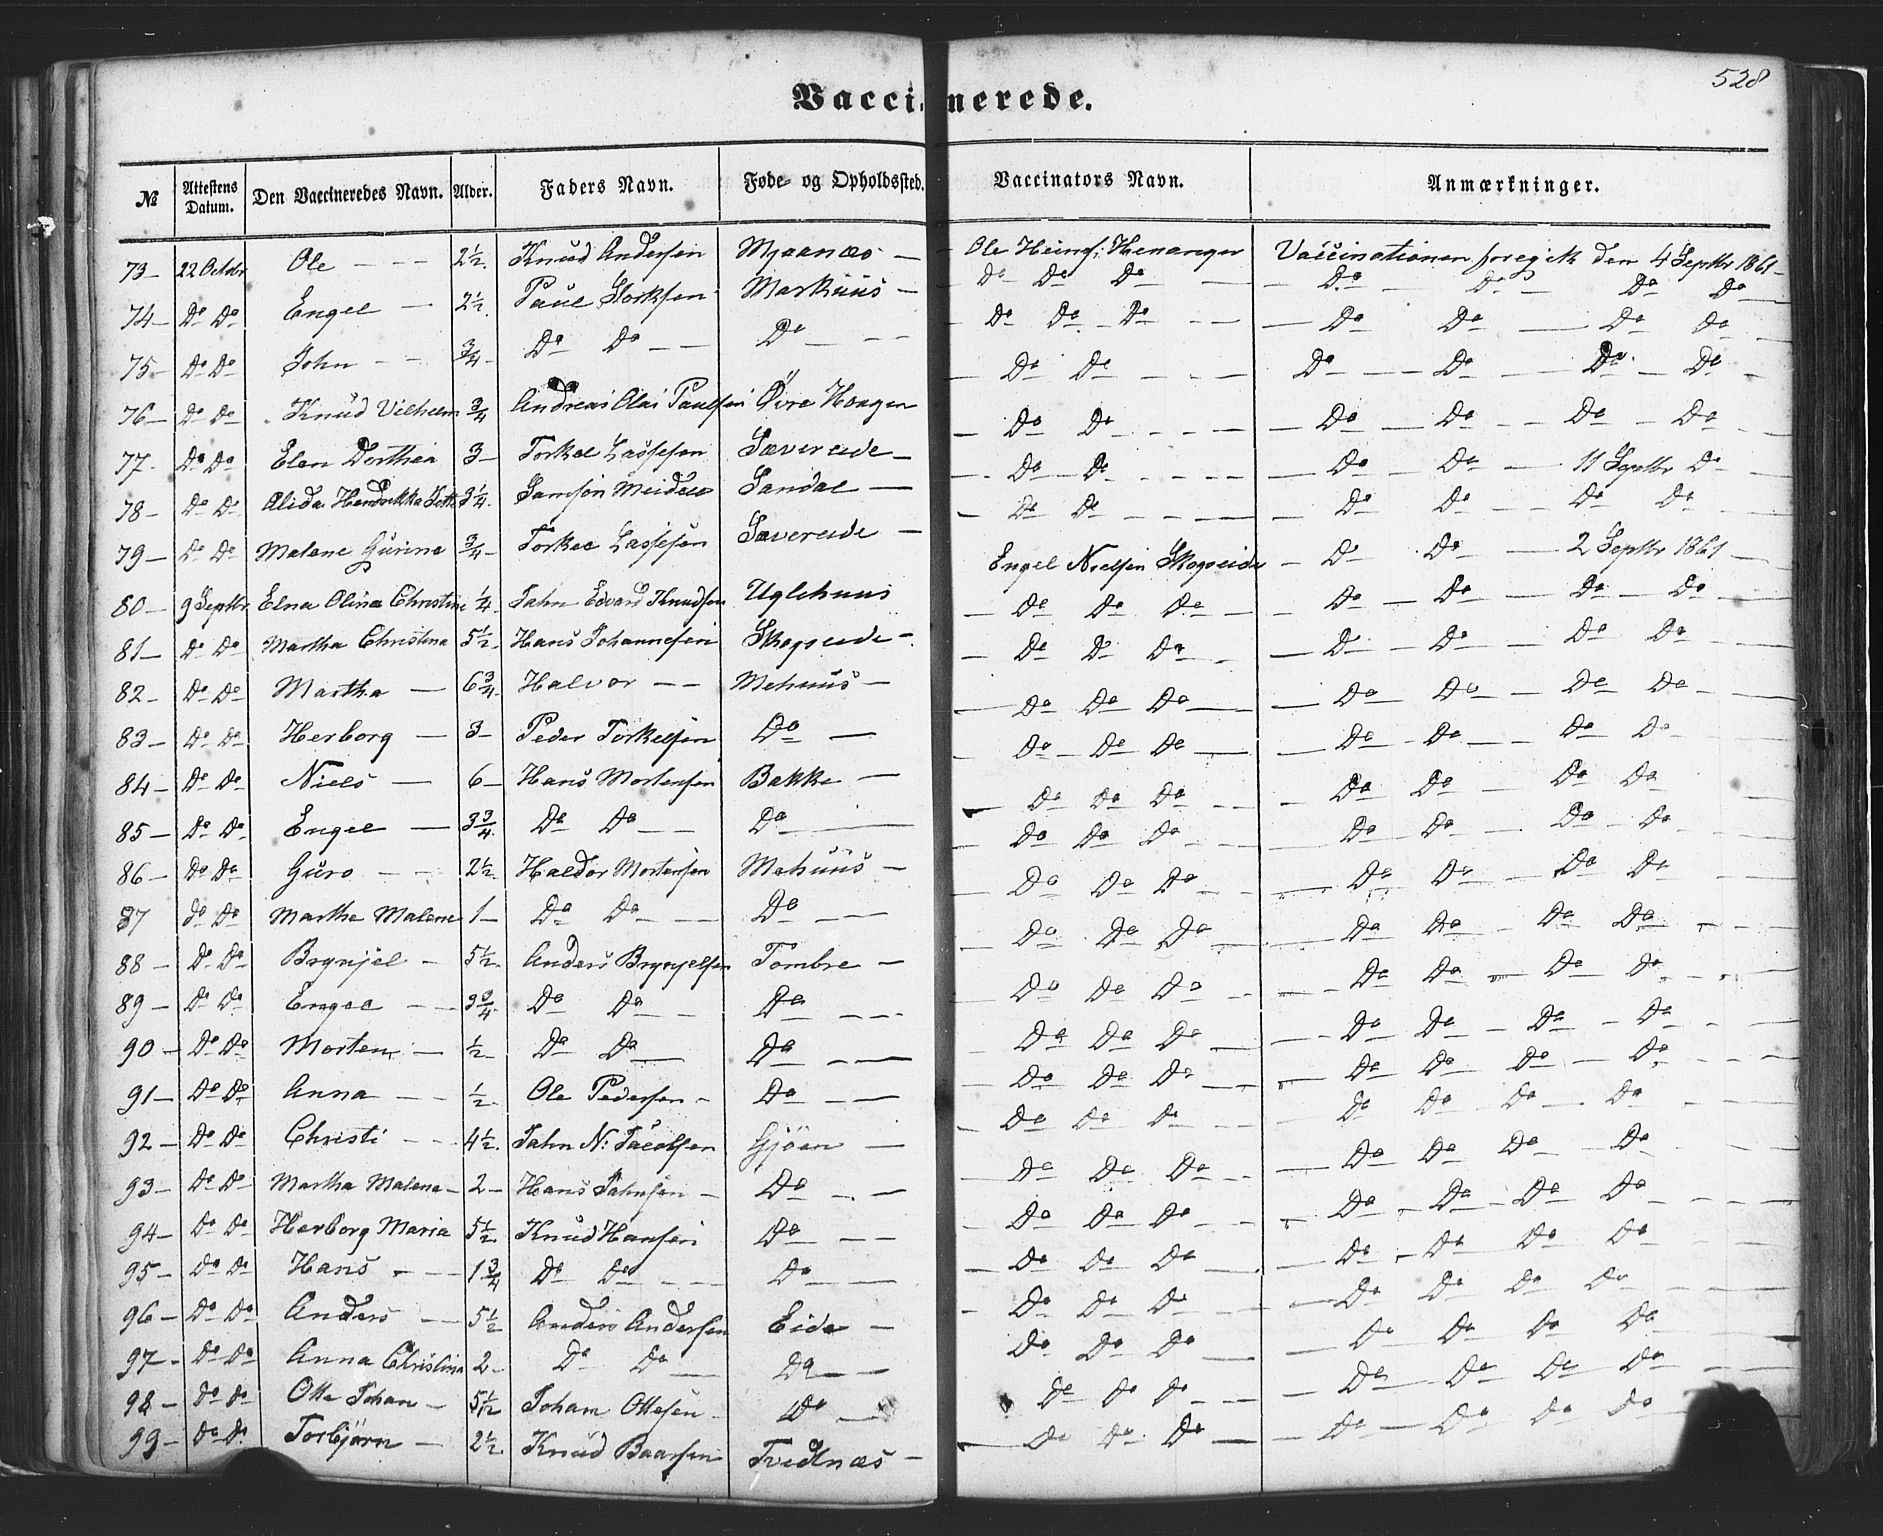 528
Vaccinerede.
№ Attestens Datum. Den Vaccineredes Navn. Alder. Faders Navn. Føde- og Opholdssted. Vaccinators Navn. Anmærkninger.
73 – 22 Octbr Ole – – – 2½. Knud Andersen Mjaanæs – Ole Heinr: Henanger Vaccinationen foregik den 4 Septbr 1861 –
74 – Do Do Engel – 2½. Paul Størksen Markhuus – Do Do Do – – Do – Do – Do Do
75 – Do Do John – – ¾ – Do Do – – Do – – – – Do Do – Do – – – Do Do – Do Do
76 – Do Do Knud Vilhelm ¾ Andreas Olai Paulsen Øvre Haagen – Do Do – – – Do – – Do – Do – Do
77 – Do Do Elen Dorthea 3 – Torkel Lassesen Sævereide – – Do Do – – – – Do – Do – Do – Do
78 – Do Do Alida Hendrikka 3¼. Samson Meidell Sandal – – Do Do – – – – Do – Do – 11 Septbr Do –
79 – Do Do Malene Gurine ¾ – Torkel Lassesen Sævereide – – Do Do – – – – Do Do Do Do –
80 – 9 Septbr Elna Olina Christine ¼. Jahn Edvard Knudsen Uglehuus Engel Nielsen Skogseide – Do Do – 2 Septbr 1861 –
81 – Do Do Martha Christina 5½. Hans Johannesen Skogseide – – Do Do Do – – – Do – Do – Do – Do –
82 – Do Do Martha – 6¾. Halvor – – Mehuus – – Do Do Do – – – Do – Do – Do Do –
83 – Do Do Herborg – 3 – Peder Torkelsen Do – – Do Do Do – – Do – Do – Do Do –
84 – Do Do Niels – 6 – Hans Mortensen Bakke – – Do – Do Do – – Do – Do – – Do Do –
85 – Do Do Engel – 3¾. Do Do – – Do – – – Do Do Do – – – Do Do – Do Do
86 – Do Do Guro – – 2½. Haldor Mortensen Mehuus – – Do Do Do – – – Do – Do – – Do – Do
87 Do Do Marthe Malene 1 – Do Do – – Do – – – Do Do Do – – – Do Do – – Do Do
88 – Do Do Brynjel – 5½. Anders Brynjelsen Tombre – – Do Do Do – – Do Do – Do Do – –
89 – Do Do Engel – – 3¾. Do Do – – Do – – – – Do Do Do – – – Do Do – – Do – Do
90 – Do Do Morten – ½ – Do Do – Do – – – Do Do Do – – – Do Do – Do – Do
91 – Do Do Anna – – ½. Ole Pedersen – Do – – – Do Do Do – – – Do Do – Do – Do
92 – Do Do Christi – – 4½. Jahn N: Jacobsen Gjøen – – Do Do Do – – – Do Do – Do – Do
93 – Do Do Martha Malene – 2 – Hans Jahnsen – Do – – – Do Do Do – – – Do Do – Do – Do
94 – Do Do Herborg Maria 5½. Knud Hansen Do – – – Do Do Do – – – Do – Do – Do – Do
95 – Do Do Hans – – 1¾ Do Do – – – Do – – – Do Do Do – – Do – Do – Do Do
96 – Do Do Anders – 5½ Anders Andersen Eide – – Do Do Do – – – Do Do Do Do
97 – Do Do Anna Christina 2 – Do Do – Do – – Do Do Do – – Do Do Do Do
98 – Do Do Otte Johan – 5½. Johan Ottesen – Do – Do Do Do – – – Do – Do – Do – Do
99 – Do Do Torbjørn – 2½. Knud Baarsen Tvedtnæs – – Do Do Do – – Do – Do – Do Do